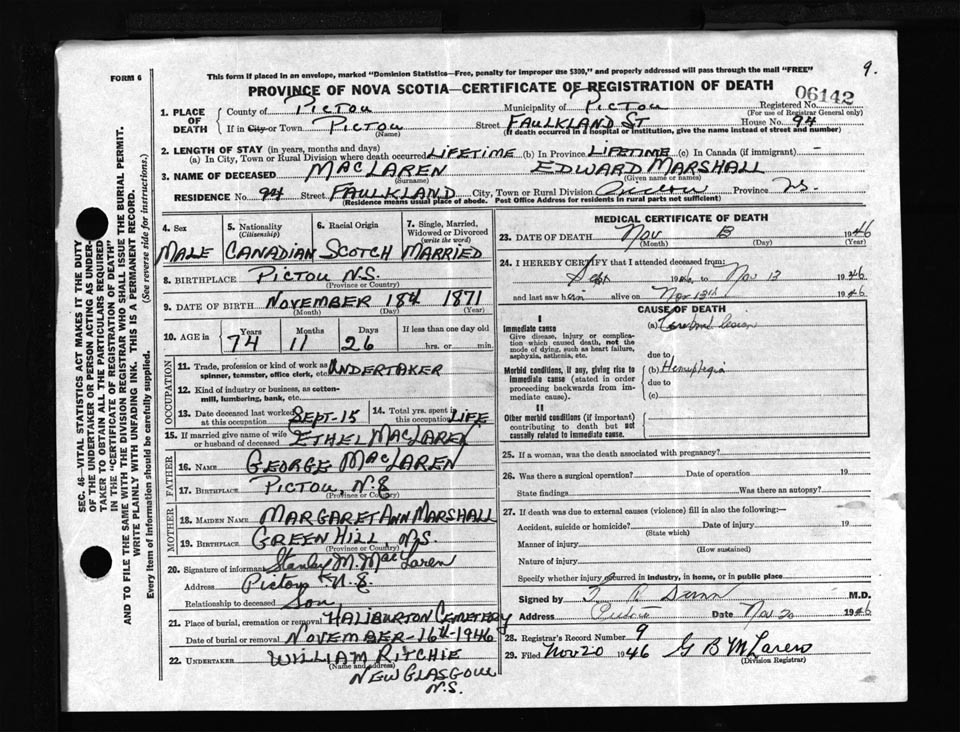 FORM 6
This form if placed in an envelope, marked "Dominion Statistics—Free, penalty for improper use $300," and properly addressed will pass through the mail "FREE"
9.
PROVINCE OF NOVA SCOTIA—CERTIFICATE OF REGISTRATION OF DEATH
06142
1. PLACE OF DEATH
County of PICTOU Municipality of PICTOU Registered No.
(For use of Registrar General only)
If in City or Town PICTOU Street FAULKLAND ST House No. 94
(Name) (If death occurred in a hospital or institution, give the name instead of street and number)
2. LENGTH OF STAY (in years, months and days)
(a) In City, Town or Rural Division where death occurred LIFETIME (b) In Province LIFETIME (c) In Canada (if immigrant) —
3. NAME OF DECEASED MACLAREN EDWARD MARSHALL
(Surname) (Given name or names)
RESIDENCE No. 94 Street FAULKLAND City, Town or Rural Division Pictou Province N.S.
(Residence means usual place of abode. Post Office Address for residents in rural parts not sufficient)
4. Sex 5. Nationality (Citizenship) 6. Racial Origin 7. Single, Married, Widowed or Divorced (write the word)
MALE CANADIAN SCOTCH MARRIED
8. BIRTHPLACE PICTOU N.S.
(Province or Country)
9. DATE OF BIRTH NOVEMBER 18th 1871
(Month) (Day) (Year)
10. AGE in Years Months Days If less than one day old
74 11 26 hrs. or min.
OCCUPATION
11. Trade, profession or kind of work as spinner, teamster, office clerk, etc. UNDERTAKER
12. Kind of industry or business, as cotton-mill, lumbering, bank, etc.
13. Date deceased last worked at this occupation SEPT-15 14. Total yrs. spent in this occupation LIFE
15. If married give name of wife or husband of deceased ETHEL MACLAREN
FATHER
16. NAME GEORGE MACLAREN
17. BIRTHPLACE PICTOU, N.S
(Province or Country)
MOTHER
18. MAIDEN NAME MARGARET ANN MARSHALL
19. BIRTHPLACE GREEN HILL, N.S.
(Province or Country)
20. Signature of informant Stanley M. MacLaren
Address Pictou N.S.
Relationship to deceased Son
21. Place of burial, cremation or removal HALIBURTON CEMETERY
Date of burial or removal NOVEMBER-16th-1946
22. UNDERTAKER WILLIAM RITCHIE
(Name and address)
NEW GLASGOW
N.S.
MEDICAL CERTIFICATE OF DEATH
23. DATE OF DEATH Nov 13 1946
(Month) (Day) (Year)
24. I HEREBY CERTIFY that I attended deceased from:
Sept 1946 to Nov 13 1946
and last saw him alive on Nov 13th 1946
CAUSE OF DEATH
I
Immediate cause
Give disease, injury or complication which caused death, not the mode of dying, such as heart failure, asphyxia, asthenia, etc.
(a) Cerebral
due to
Morbid conditions, if any, giving rise to immediate cause (stated in order proceeding backwards from immediate cause).
(b) Hemiplegia
due to
(c)
II
Other morbid conditions (if important) contributing to death but not causally related to immediate cause.
25. If a woman, was the death associated with pregnancy?
26. Was there a surgical operation? Date of operation 19
State findings Was there an autopsy?
27. If death was due to external causes (violence) fill in also the following:—
Accident, suicide or homicide? Date of injury 19
(State which)
Manner of injury
(How sustained)
Nature of injury
Specify whether injury occurred in industry, in home, or in public place
Signed by Dunn M.D.
Address Pictou Date Nov 20 1946
28. Registrar's Record Number 9
29. Filed Nov 20 1946 G B McLaren
(Division Registrar)
SEC. 46—VITAL STATISTICS ACT MAKES IT THE DUTY
OF THE UNDERTAKER OR PERSON ACTING AS UNDERTAKER
TO OBTAIN ALL THE PARTICULARS REQUIRED
IN THE "CERTIFICATE OF REGISTRATION OF DEATH"
AND TO FILE THE SAME WITH THE DIVISION REGISTRAR WHO SHALL ISSUE THE BURIAL PERMIT.
WRITE PLAINLY WITH UNFADING INK. THIS IS A PERMANENT RECORD.
Every item of information should be carefully supplied. (See reverse side for instructions.)